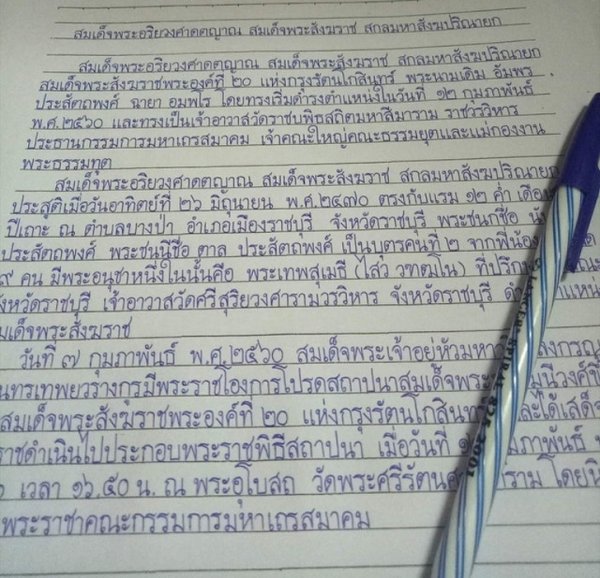 สมเด็จพระอริยวงศาคตญาณ สมเด็จพระสังฆราช สกลมหาสังฆปริณายก
สมเด็จพระอริยวงศาคตญาณ สมเด็จพระสังฆราช สกลมหาสังฆปริณายก
สมเด็จพระสังฆราชพระองค์ที่ ๒๐ แห่งกรุงรัตนโกสินทร์ พระนามเดิม อัมพร
ประสัตถพงศ์ ฉายา อมฺพโร โดยทรงเริ่มดำรงตำแหน่งในวันที่ ๑๒ กุมภาพันธ์
พ.ศ.๒๕๖๐ และทรงเป็นเจ้าอาวาสวัดราชบพิธสถิตมหาสีมาราม ราชวรวิหาร
ประธานกรรมการมหาเถรสมาคม เจ้าคณะใหญ่คณะธรรมยุตและแม่กองงาน
พระธรรมทูต
สมเด็จพระอริยวงศาคตญาณ สมเด็จพระสังฆราช สกลมหาสังฆปริณายก
ประสูติเมื่อวันอาทิตย์ที่ ๒๖ มิถุนายน พ.ศ.๒๔๗๐ ตรงกับแรม ๑๒ ค่ำ เดือน
ปีเถาะ ณ ตำบลบางป่า อำเภอเมืองราชบุรี จังหวัดราชบุรี พระชนกชื่อ
ประสัตถพงศ์ พระชนนีชื่อ ตาล ประสัตถพงศ์ เป็นบุตรคนที่ ๒ จากพี่น้อง
๙ คน มีพระอนุชาหนึ่งในนั้นคือ พระเทพสุเมธี (ไสว วฑฺฒโน) ที่ปรึกษา
จังหวัดราชบุรี เจ้าอาวาสวัดศรีสุริยวงศารามวรวิหาร จังหวัดราชบุรี
สมเด็จพระสังฆราช
วันที่ ๗ กุมภาพันธ์ พ.ศ.๒๕๖๐ สมเด็จพระเจ้าอยู่หัวมหา
นทรเทพยวรางกูรมีพระราชโองการโปรดสถาปนาสมเด็จพระ
สมเด็จพระสังฆราชพระองค์ที่ ๒๐ แห่งกรุงรัตนโกสินทร์ และได้เสด็จ
ราชดำเนินไปประกอบพระราชพิธีสถาปนา เมื่อวันที่
เวลา ๑๖.๕๐ น. ณ พระอุโบสถ วัดพระศรีรัตน โดย
พระราชาคณะกรรมการมหาเถรสมาคม